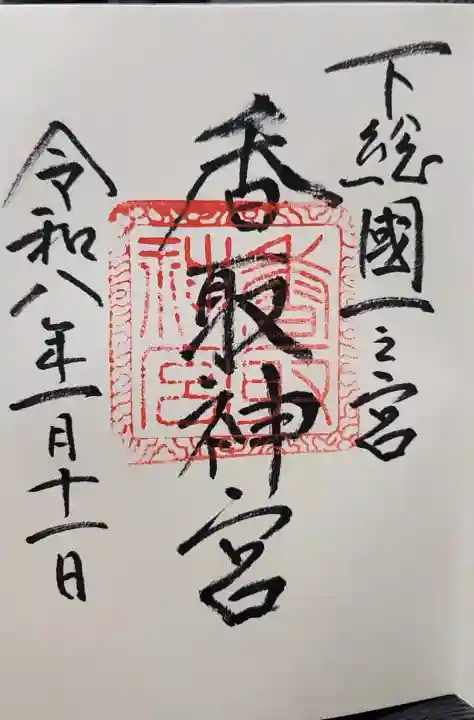 下総國一之宮
香取神宮
令和八年一月十一日
香取
神宮